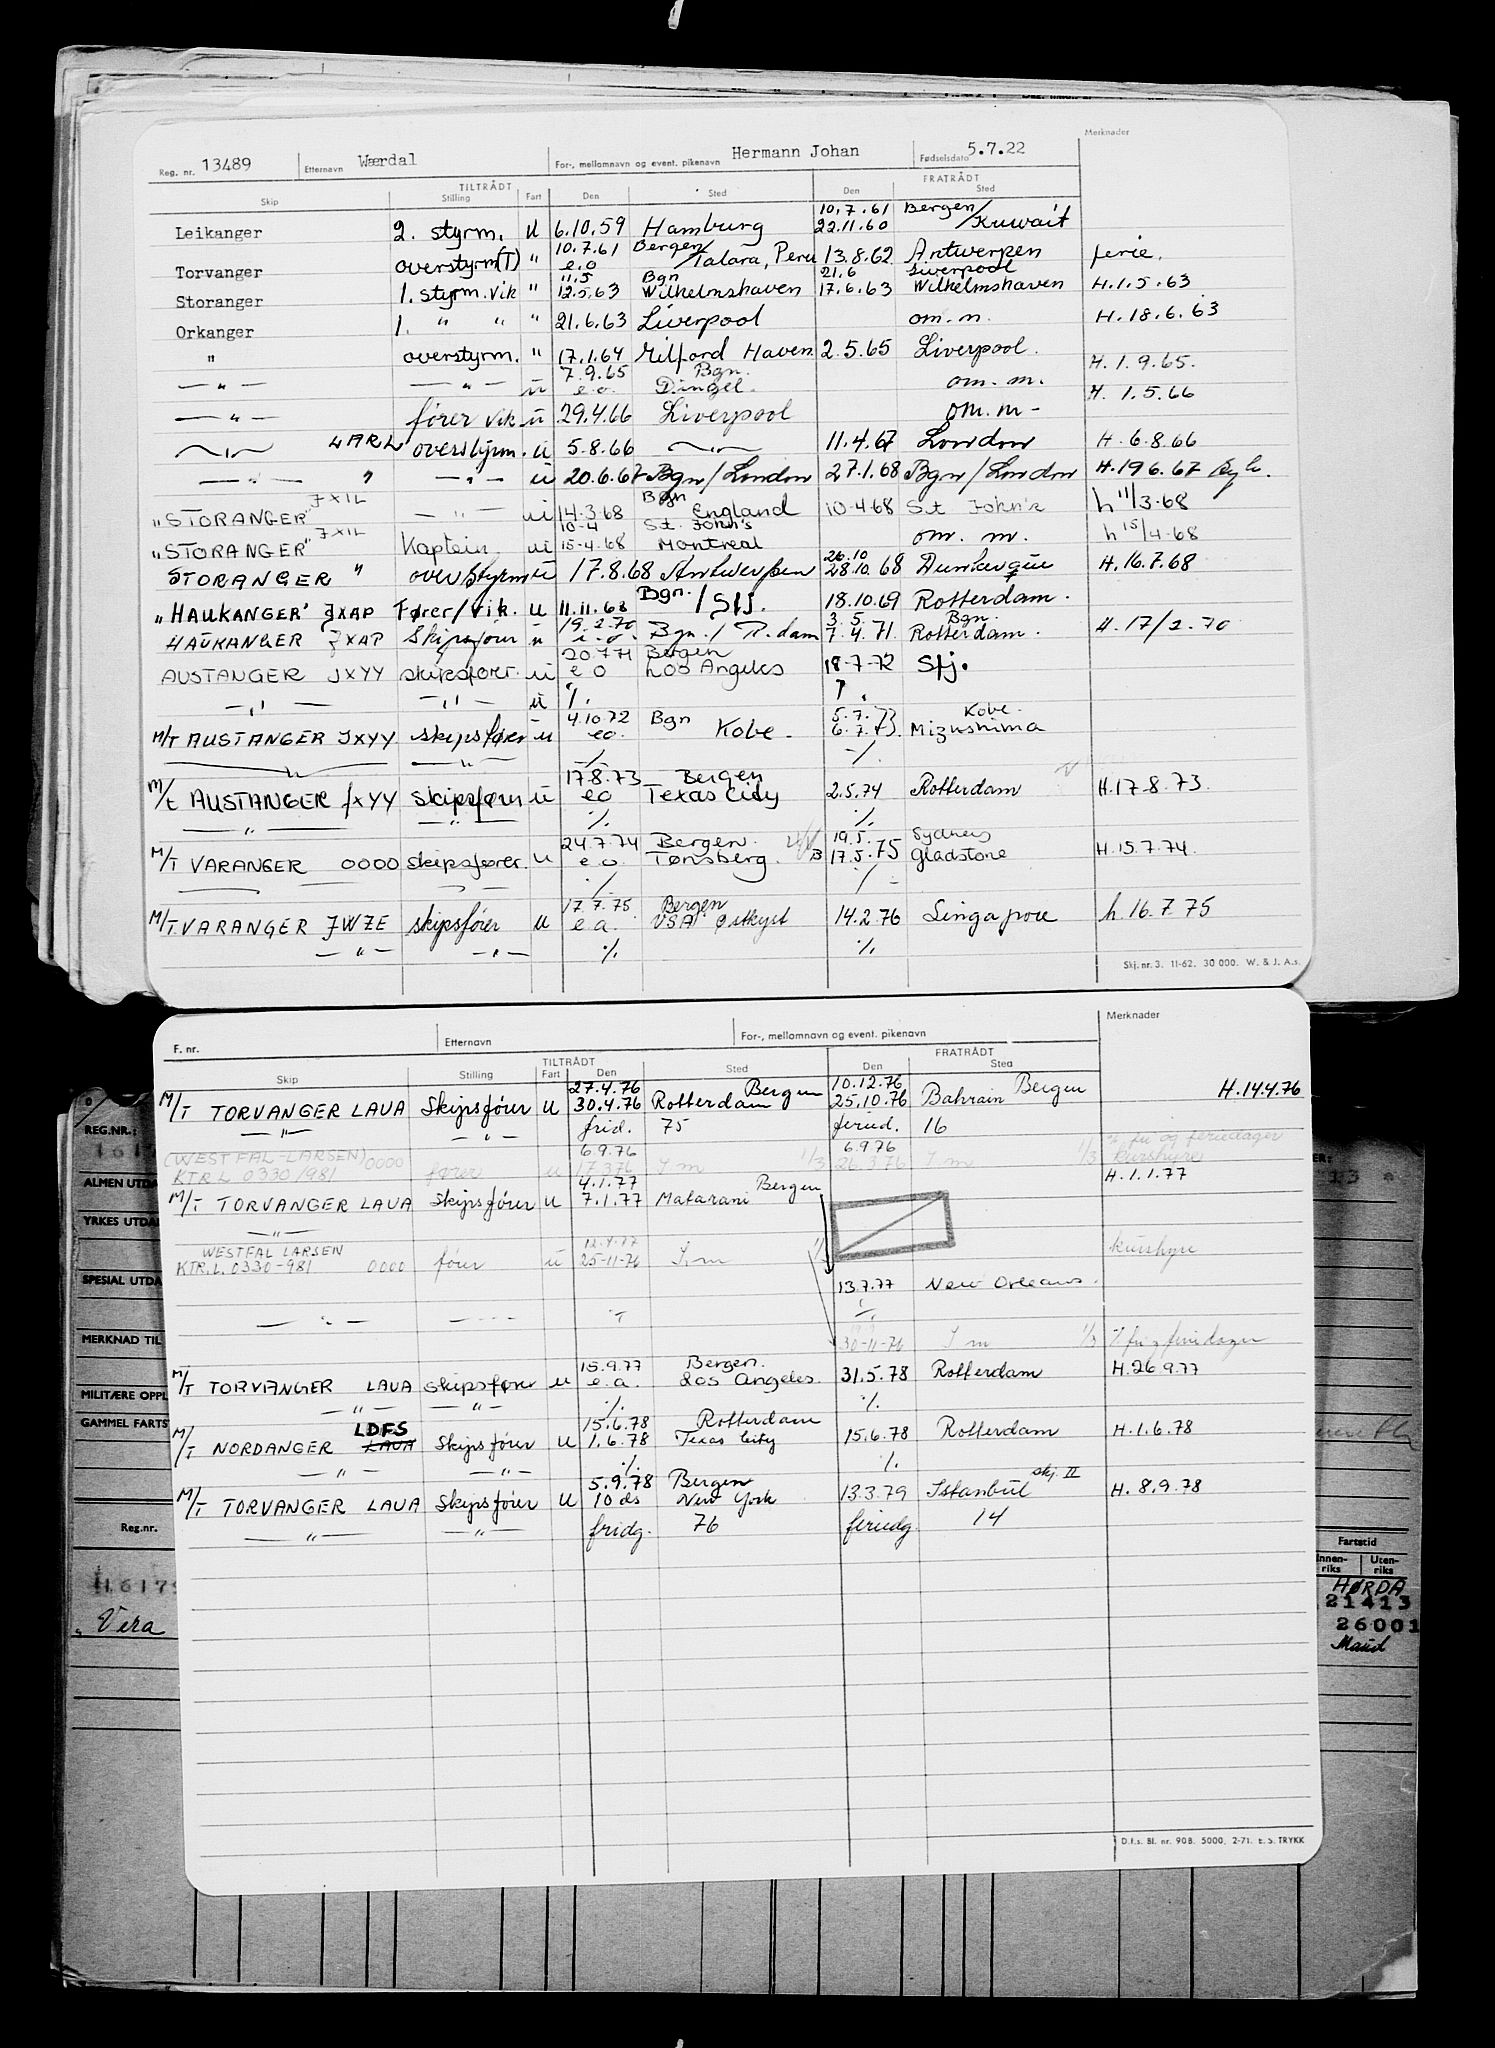 Merknader
Reg. nr. 13489 Etternavn Wærdal For-, mellomnavn og event. pikenavn Hermann Johan Fødselsdato 5.7.22
TILTRÅDT FRATRÅDT
Skip Stilling Fart Den Sted Den Sted
10.7.61 Bergen/
Leikanger 2. styrm. u 6.10.59 Hamburg 22.11.60 Kuwait
10.7.61 Bergen/
Torvanger overstyrm(T) " e.o Talara, Peru 13.8.62 Antwerpen ferie.
11.5 Bgn 21.6 Liverpool
Storanger 1. styrm. vik " 12.5.63 Wilhelmshaven 17.6.63 Wilhelmshaven H.1.5.63
Orkanger 1. " " " 21.6.63 Liverpool om. m. H.18.6.63
" overstyrm. " 17.1.64 Milford Haven 2.5.65 Liverpool.
7.9.65 Bgn. H.1.9.65.
— " — — " — u e.o. Dingel. om. m.
H. 1.5.66
— " — fører vik u 29.4.66 Liverpool om. m -
— " — LARL overstyrm. u 5.8.66 — " — 11.4.67 London H. 6.8.66
— " — " — " — u 20.6.67 Bgn/London 27.1.68 Bgn/London H.196.67
JXIL Bgn
"STORANGER" — " — u 14-3.68 England 10-4-68 St John's h 11/3-68
JXIL 10-4 St. John's
"STORANGER" Kaptein u 15-4.68 Montreal om. m. h 15/4-68
26.10
STORANGER " overstyrm u 17.8.68 Antwerpen 28.10.68 Dunkerque H.16.7.68
"HAUKANGER" JXAP Fører/vik. u 11.11.68 Bgn./Sfj. 18.10.69 Rotterdam.
19.2.70 3.5. Bgn.
HAUKANGER JXAP Skipsfører u e.o. Bgn./R.dam 7.4.71 Rotterdam. H.17/2.70
20.7.71 Bergen
AUSTANGER JXYY skipsfører u e o Los Angeles 18-7-72 Sfj.
— " — — " — u %.
4.10.72 Bgn 5.7.73 Kobe.
M/T AUSTANGER JXYY skipsfører u eo. Kobe. 6.7.73. Mizushima
— " — — " — % %.
17.8.73 Bergen
M/T AUSTANGER JXYY Skipsfører u eo Texas City 2.5.74 Rotterdam H.17.8.73.
— " — — " — %. %.
24.7.74 Bergen. 19.5. Sydney
M/T VARANGER OOOO skipsfører. u e.o. Tønsberg. 17.5.75 Gladstone H.15.7.74.
— " — — " — %. %
17.7.75 Bergen
M/T VARANGER JWZE skipsfører u e.a. USA Østkyst 14.2.76 Singapore h.16.7.75
— " — — " — %. %.
Skj. nr. 3. 11-62. 30 000. W. & J. A.s.
F. nr. Etternavn For-, mellomnavn og event. pikenavn Merknader
TILTRÅDT FRATRÅDT
Skip Stilling Fart Den Sted Den Sted
27.4.76 Bergen 10.12.76 Bergen
M/T TORVANGER LAVA Skipsfører u 30.4.76 Rotterdam 25.10.76 Bahrain H.14.4.76
— " — — " — frid. 75 feried. 16
6.9.76 6.9.76 % fri og feriedager
(WESTFAL-LARSEN) OOOO
KTR.L 0330/981 fører u 17.3.76 I m 1/3 26.3.76 I m 1/3 kurshyre
4.1.77 Bergen H.1.1.77
M/T TORVANGER LAVA Skipsfører u 7.1.77 Matarani
— " —
WESTFAL LARSEN 12.4.77
KTR.L. 0330-981 OOOO fører u 25-11-76 I.m kurshyre
13.7.77 New Orleans.
— " — — " — % %
30-11-76 I m 1/3 % fri og feriedager
15.9.77 Bergen.
M/T TORVANGER LAVA skipsfører u e.a. Los Angeles. 31.5.78 Rotterdam H.26.9.77
— " — — " — %. %.
LDFS 15.6.78 Rotterdam
M/T NORDANGER LAVA Skipsfører u 1.6.78 Texas City 15.6.78 Rotterdam H.1.6.78
— " — — " — %. %.
5.9.78 Bergen skj. II
M/T TORVANGER LAVA Skipsfører u 10 ds New York 13.3.79 Istanbul H. 8.9.78
— " — — " — fridg. 76 feriedg. 14
D.f.s. Bl. nr. 908. 5000. 2-71. E. S. TRYKK
REG.NR.:
ALMEN UTDA
YRKES UTDA
SPESIAL UTDA
MERKNAD TIL
MILITÆRE OPPL
GAMMEL FARTS
Reg.nr.
Vera
Fartstid
Innen-riks Uten-riks
HØRDA
21413
26001
Maud